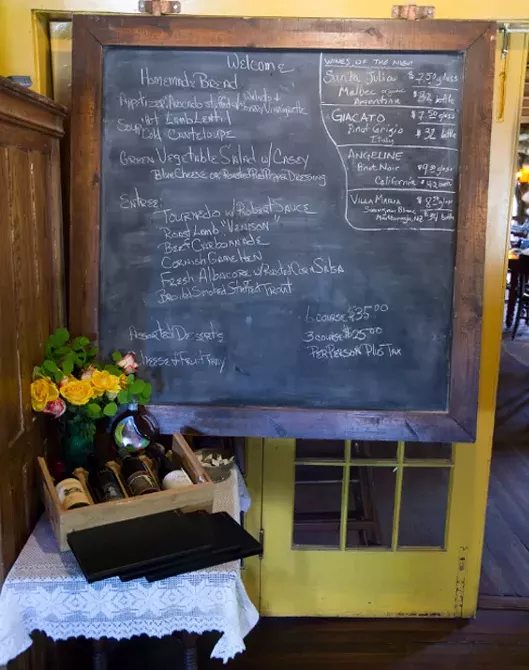 Welcome
Homemade Bread
Appetizer: Avocado stuffed w/ Walnuts & Vinaigrette
Soup: Hot Lamb Lentil
Cold Canteloupe
Green Vegetable Salad w/ Casey
Blue Cheese or Roasted Red Pepper Dressing
Entree:
Tournedo w/ Robert Sauce
Roast Lamb "Venison"
Beef Carbonnade
Cornish Game Hen
Fresh Albacore w/ Roasted Corn Salsa
Broiled Smoked Stuffed Trout
Assorted Desserts
Cheese & Fruit Tray
6 course $35.00
3 course $25.00
Per Person Plus Tax
Wines of the Nite
Santa Julia $7.50 glass
Malbec organic
Argentina $32 bottle
Giacato $7.50 glass
Pinot Grigio $32 bottle
Italy
Angeline
Pinot Noir $9.50 glass
California $42
Villa Maria $8.50 glass
Sauvignon Blanc
Marlborough, NZ bottle